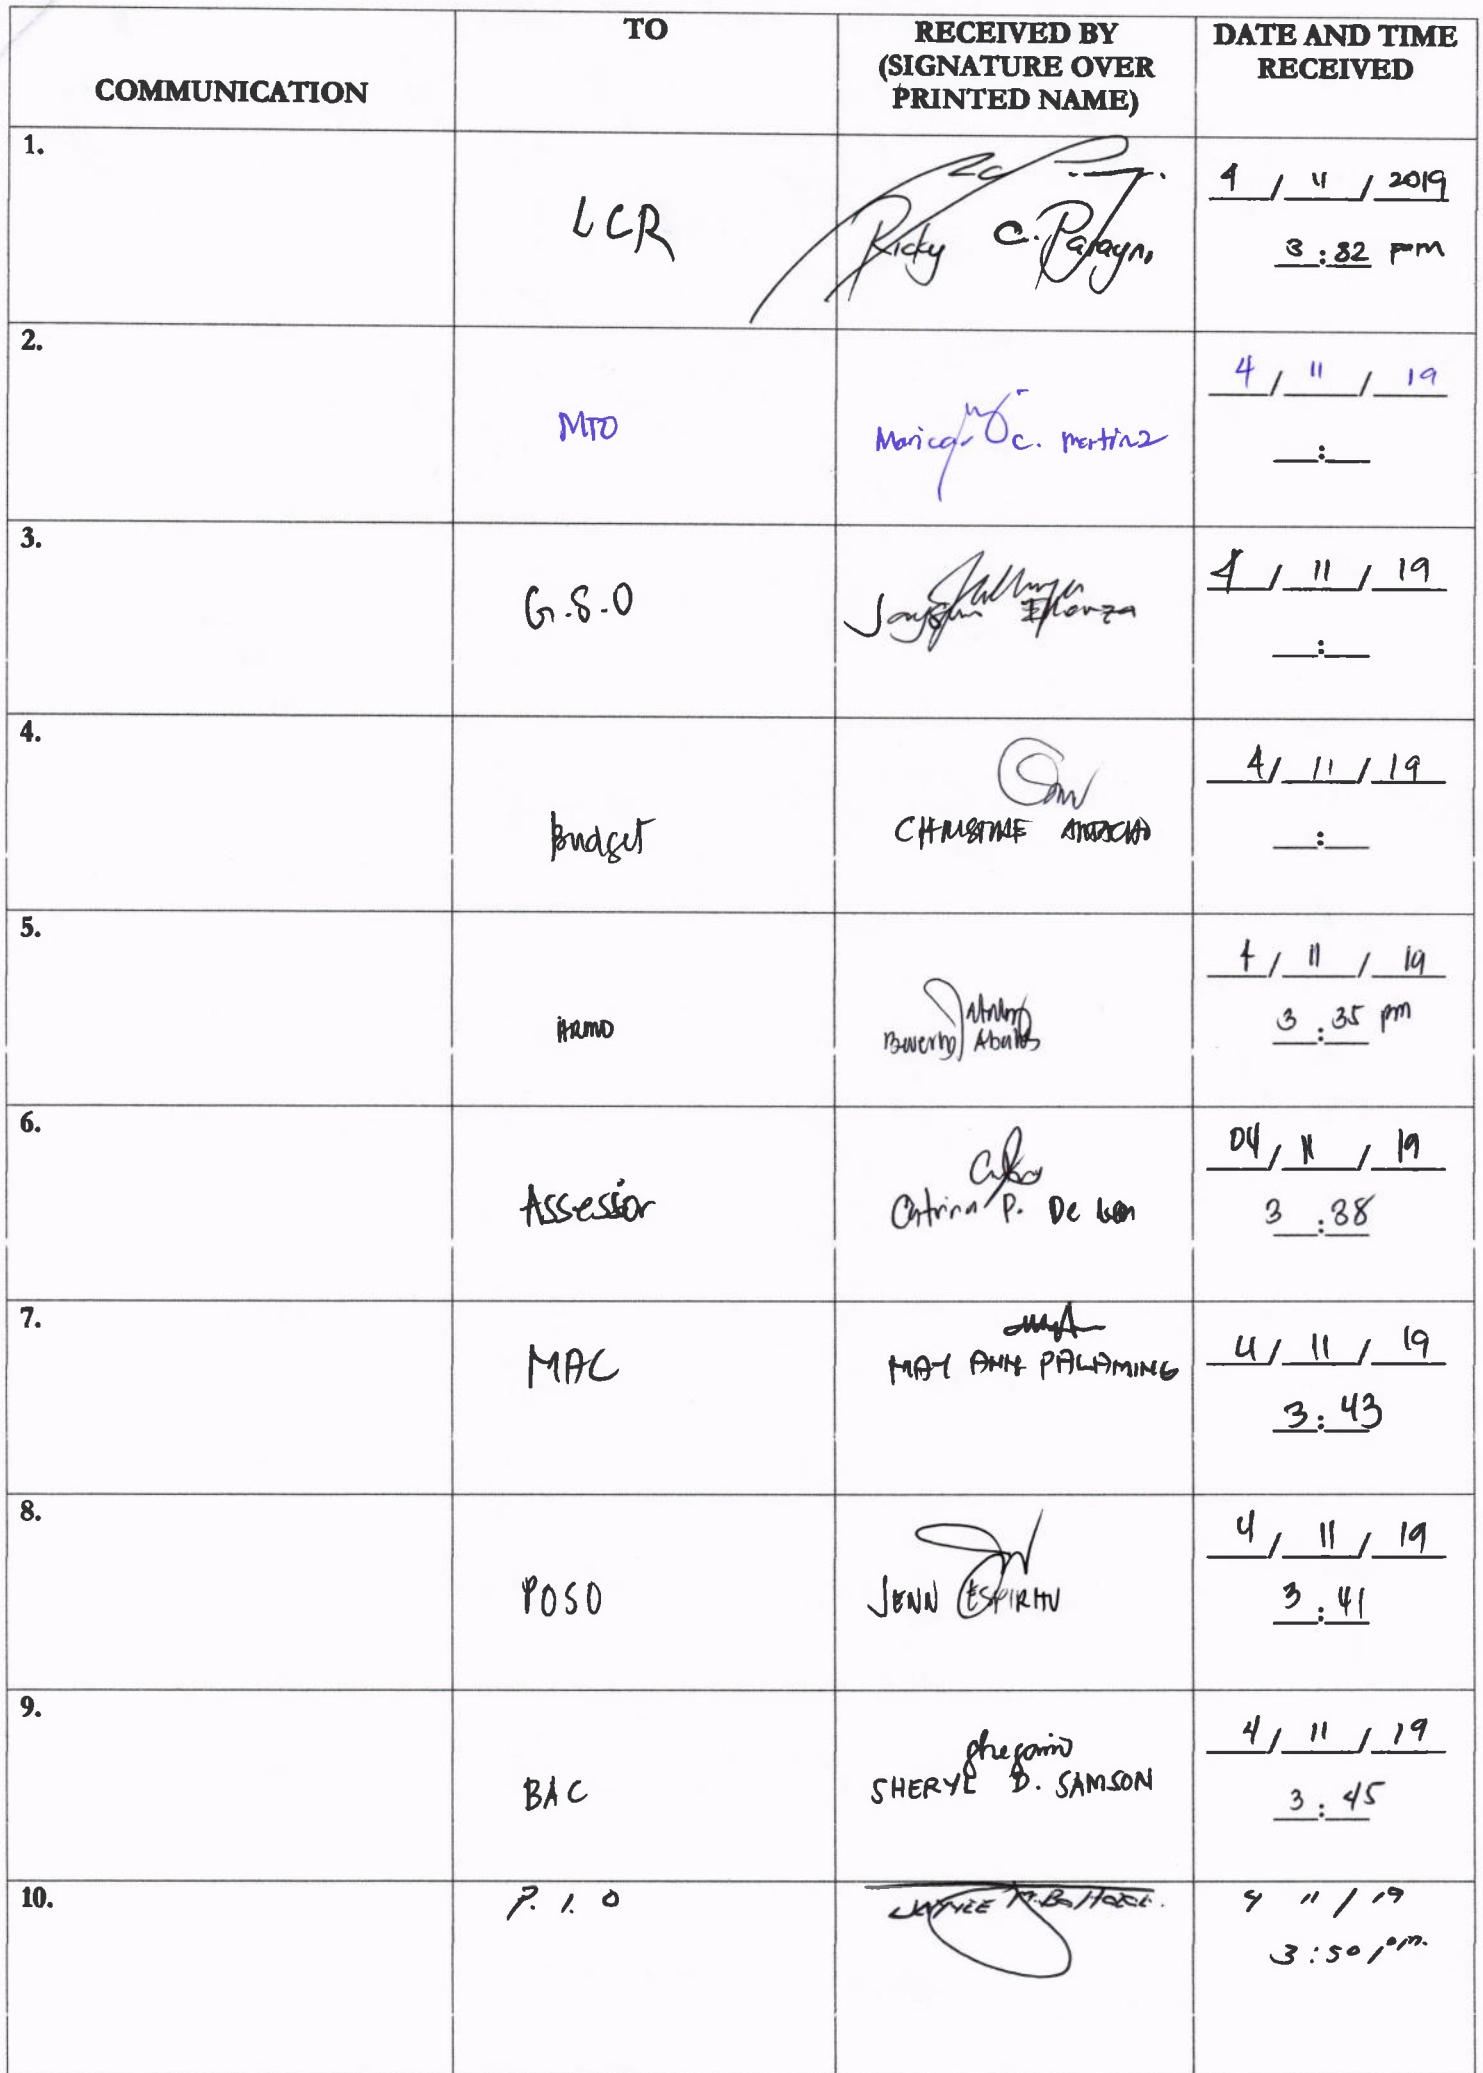 COMMUNICATION
TO
RECEIVED BY
(SIGNATURE OVER
PRINTED NAME)
DATE AND TIME
RECEIVED
1.
LCR
Ricky C.
4 / 11 / 2019
3:32 pm
2.
MTO
Maricar C.
4 / 11 / 19
__:__
3.
G.S.O
4 / 11 / 19
__:__
4.
Budget
CHRISTINE
4 / 11 / 19
__:__
5.
HRMO
4 / 11 / 19
3:35 pm
6.
Assessor
Catrina P. De
04 / 11 / 19
3:38
7.
MAC
MAY ANN PALAMING
4 / 11 / 19
3:43
8.
POSO
JENN ESPIRITU
4 / 11 / 19
3:41
9.
BAC
SHERYL D. SAMSON
4 / 11 / 19
3:45
10.
P.I.O
4 11 / 19
3:50 pm.